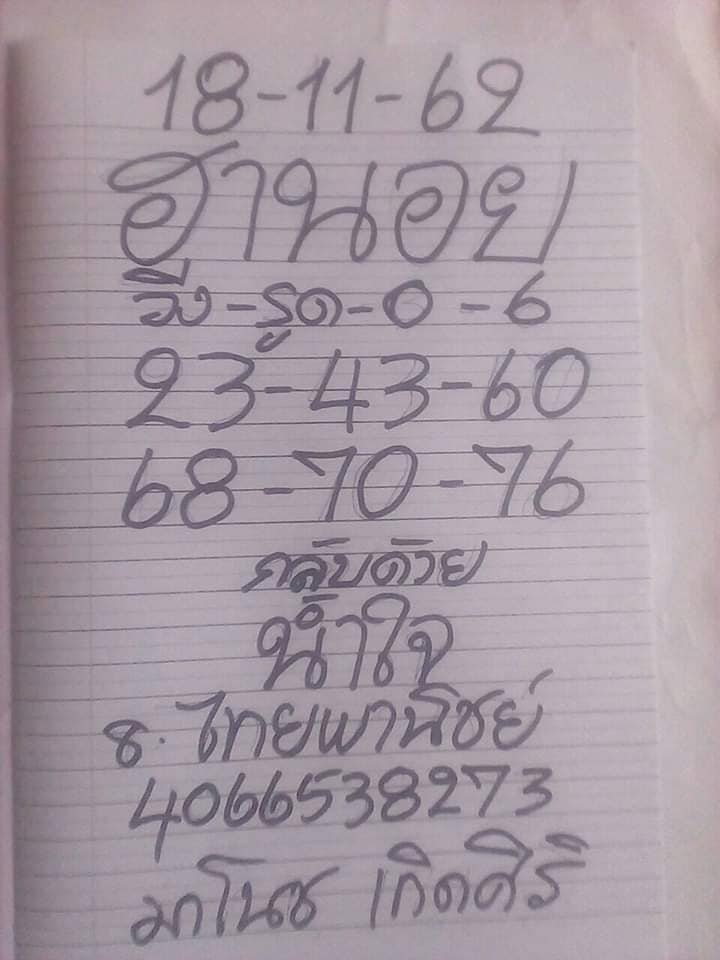 18-11-62
ฮานอย
วิ่ง-รูด-0-6
23-43-60
68-70-76
กลับด้วย
น้ำใจ
ธ.ไทยพานิชย์
4066538273
มาโนช เกิดศิริ